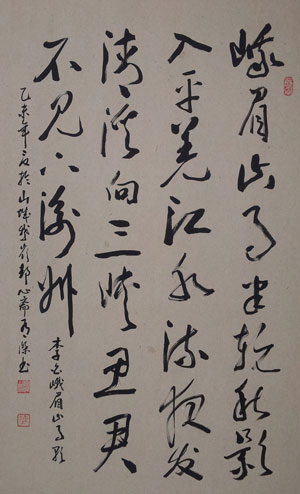 峨眉山月半轮秋影
入平羌江水流夜发
清溪向三峡思君
不见下渝州
李白峨眉山月歌
乙未年夏于山城